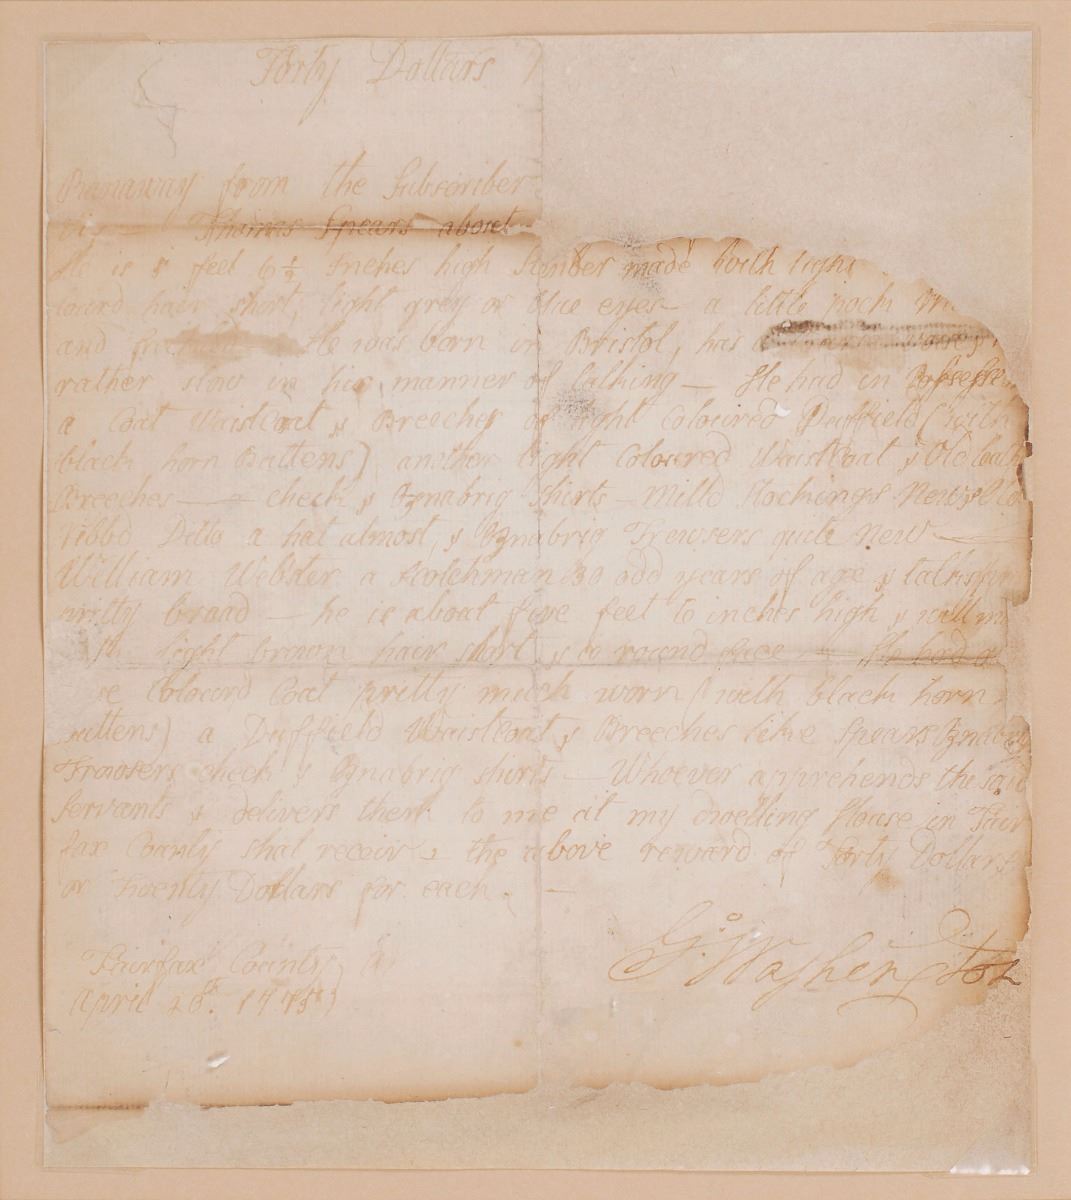 Forty Dollars
Runaway from the Subscriber
viz — Thomas Spears about
He is 5 feet 6 1/2 Inches high Slender made With light
hair short, light grey or blue eyes — a little pock
and He was born in Bristol, has
rather slow in his manner of talking — He had in
a Coat WaistCoat & Breeches of light Coloured Duffield (with
black horn Buttens) another light Coloured WaistCoat & Old
Breeches — check & Oznabrig Shirts — Milld Stockings New &
ribbd Ditto a hat almost, & Oznabrig Trowsers quite New
William Webster a Scotchman 30 odd years of age & talks
broad — he is about five feet inches high & well
light hair short & a round Face — He had a
Coloured Coat pretty much worn (with black horn
Buttens) a Duffield WaistCoat & Breeches like Spears
Trowsers check & Oznabrig shirts — Whoever apprehends the said
Servants & delivers them to me at my dwelling House in Fair
fax County shal receive the above reward of Forty Dollars
or Twenty Dollars for each. —
Fairfax County
April
G: Washington